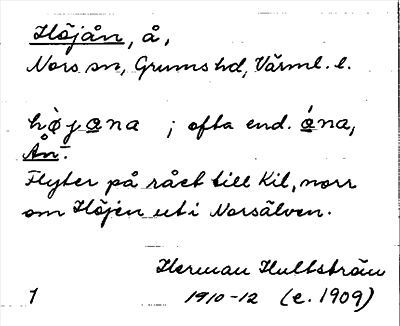 Höjån, å,
Nors sn, Grums hd, Värml. l.
hòjana ; ofta end. ána,
Ån.
Flyter på rået till Kil, norr
om Höjen ut i Norsälven.
Herman Hultström
1 1910-12 (e. 1909)